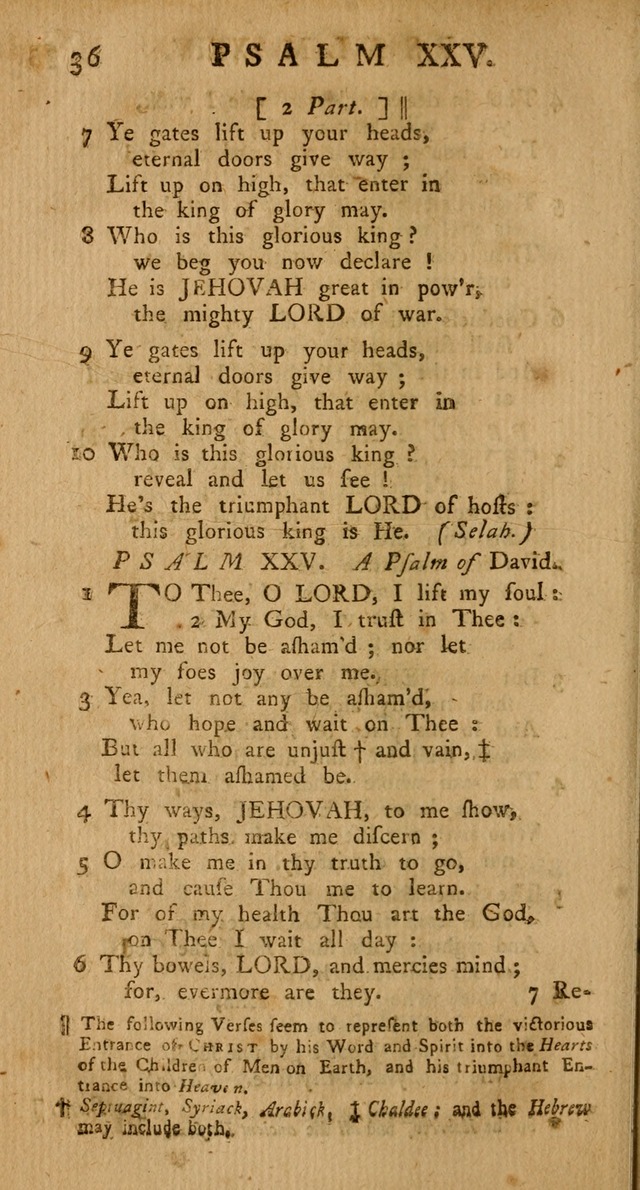 36 PSALM XXV.
[ 2 Part. ] ||
7 Ye gates lift up your heads,
eternal doors give way ;
Lift up on high, that enter in
the king of glory may.
8 Who is this glorious king ?
we beg you now declare !
He is JEHOVAH great in pow'r,
the mighty LORD of war.
9 Ye gates lift up your heads,
eternal doors give way ;
Lift up on high, that enter in
the king of glory may.
10 Who is this glorious king ?
reveal and let us ſee !
He's the triumphant LORD of hoſts :
this glorious king is He. (Selah.)
PSALM XXV. A Pſalm of David.
1 TO Thee, O LORD, I lift my ſoul :
2 My God, I truſt in Thee :
Let me not be aſham'd ; nor let
my foes joy over me.
3 Yea, let not any be aſham'd,
who hope and wait on Thee :
But all who are unjuſt † and vain, ‡
let them aſhamed be.
4 Thy ways, JEHOVAH, to me ſhow,
thy paths make me diſcern ;
5 O make me in thy truth to go,
and cauſe Thou me to learn.
For of my health Thou art the God,
on Thee I wait all day :
6 Thy bowels, LORD, and mercies mind ;
for, evermore are they. 7 Re-
|| The following Verſes ſeem to repreſent both the victorious
Entrance of CHRIST by his Word and Spirit into the Hearts
of the Children of Men on Earth, and his triumphant En-
trance into Heaven.
† Septuagint, Syriack, Arabick, ‡ Chaldee ; and the Hebrew
may include both.